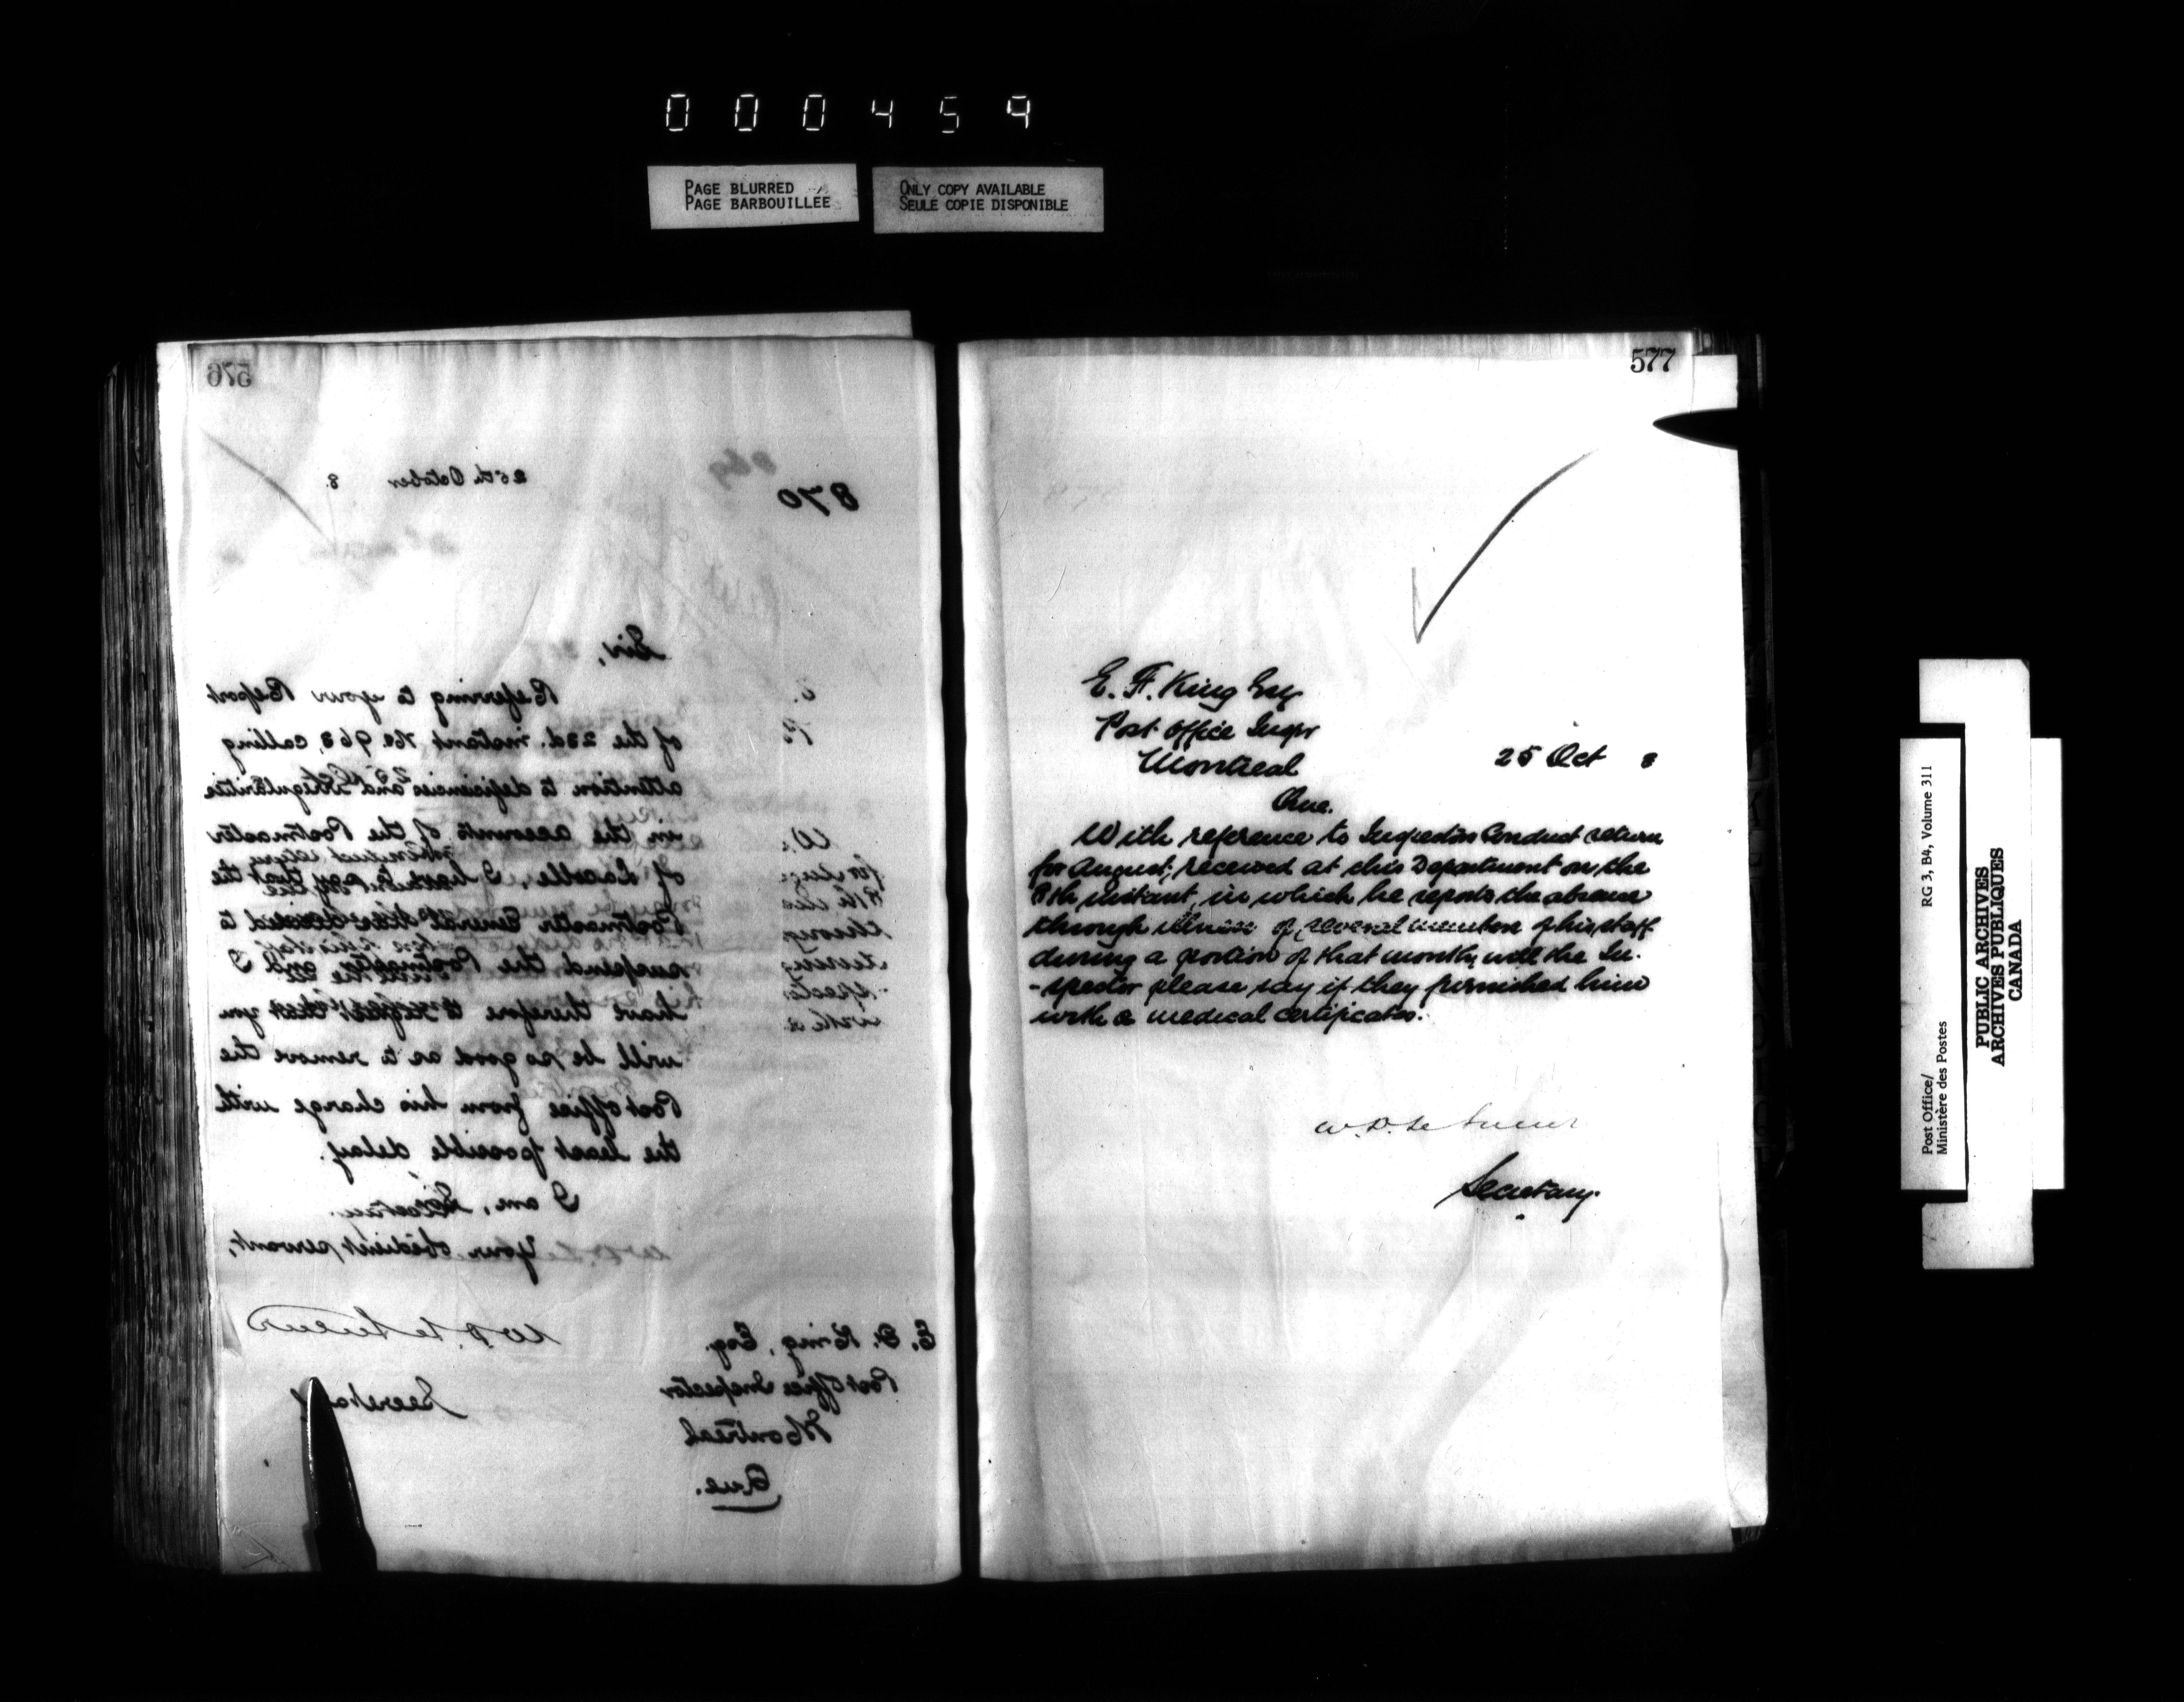 000459
PAGE BLURRED
PAGE BARBOUILLEE
ONLY COPY AVAILABLE
SEULE COPIE DISPONIBLE
576
870
25th October 8.
Sir,
Referring to your Report
of the 23d. instant No 963, calling
attention to deficiencies and irregularities
in the accounts of the Postmaster
of Lacolle, I have to say that the
Postmaster General has decided to
suspend the Postmaster and I
have therefore to request that you
will be so good as to remove the
Post office from his charge with
the least possible delay.
I am, Sir,
Your obedient servant,
W. D. Le Sueur
Secretary
E. F. King, Esq.
Post Office Inspector
Montreal
Que.
577
E. F. King Esq
Post Office Inspr
Montreal
Que.
25 Oct 8
With reference to Inspectors Conduct return
for August, received at this Department on the
8th instant, in which he reports the absence
through illness of several members of his staff
during a portion of that month, will the In-
-spector please say if they furnished him
with a medical certificates.
W. D. Le Sueur
Secretary.
Post Office/
Ministère des Postes
RG 3, B4, Volume 311
PUBLIC ARCHIVES
ARCHIVES PUBLIQUES
CANADA